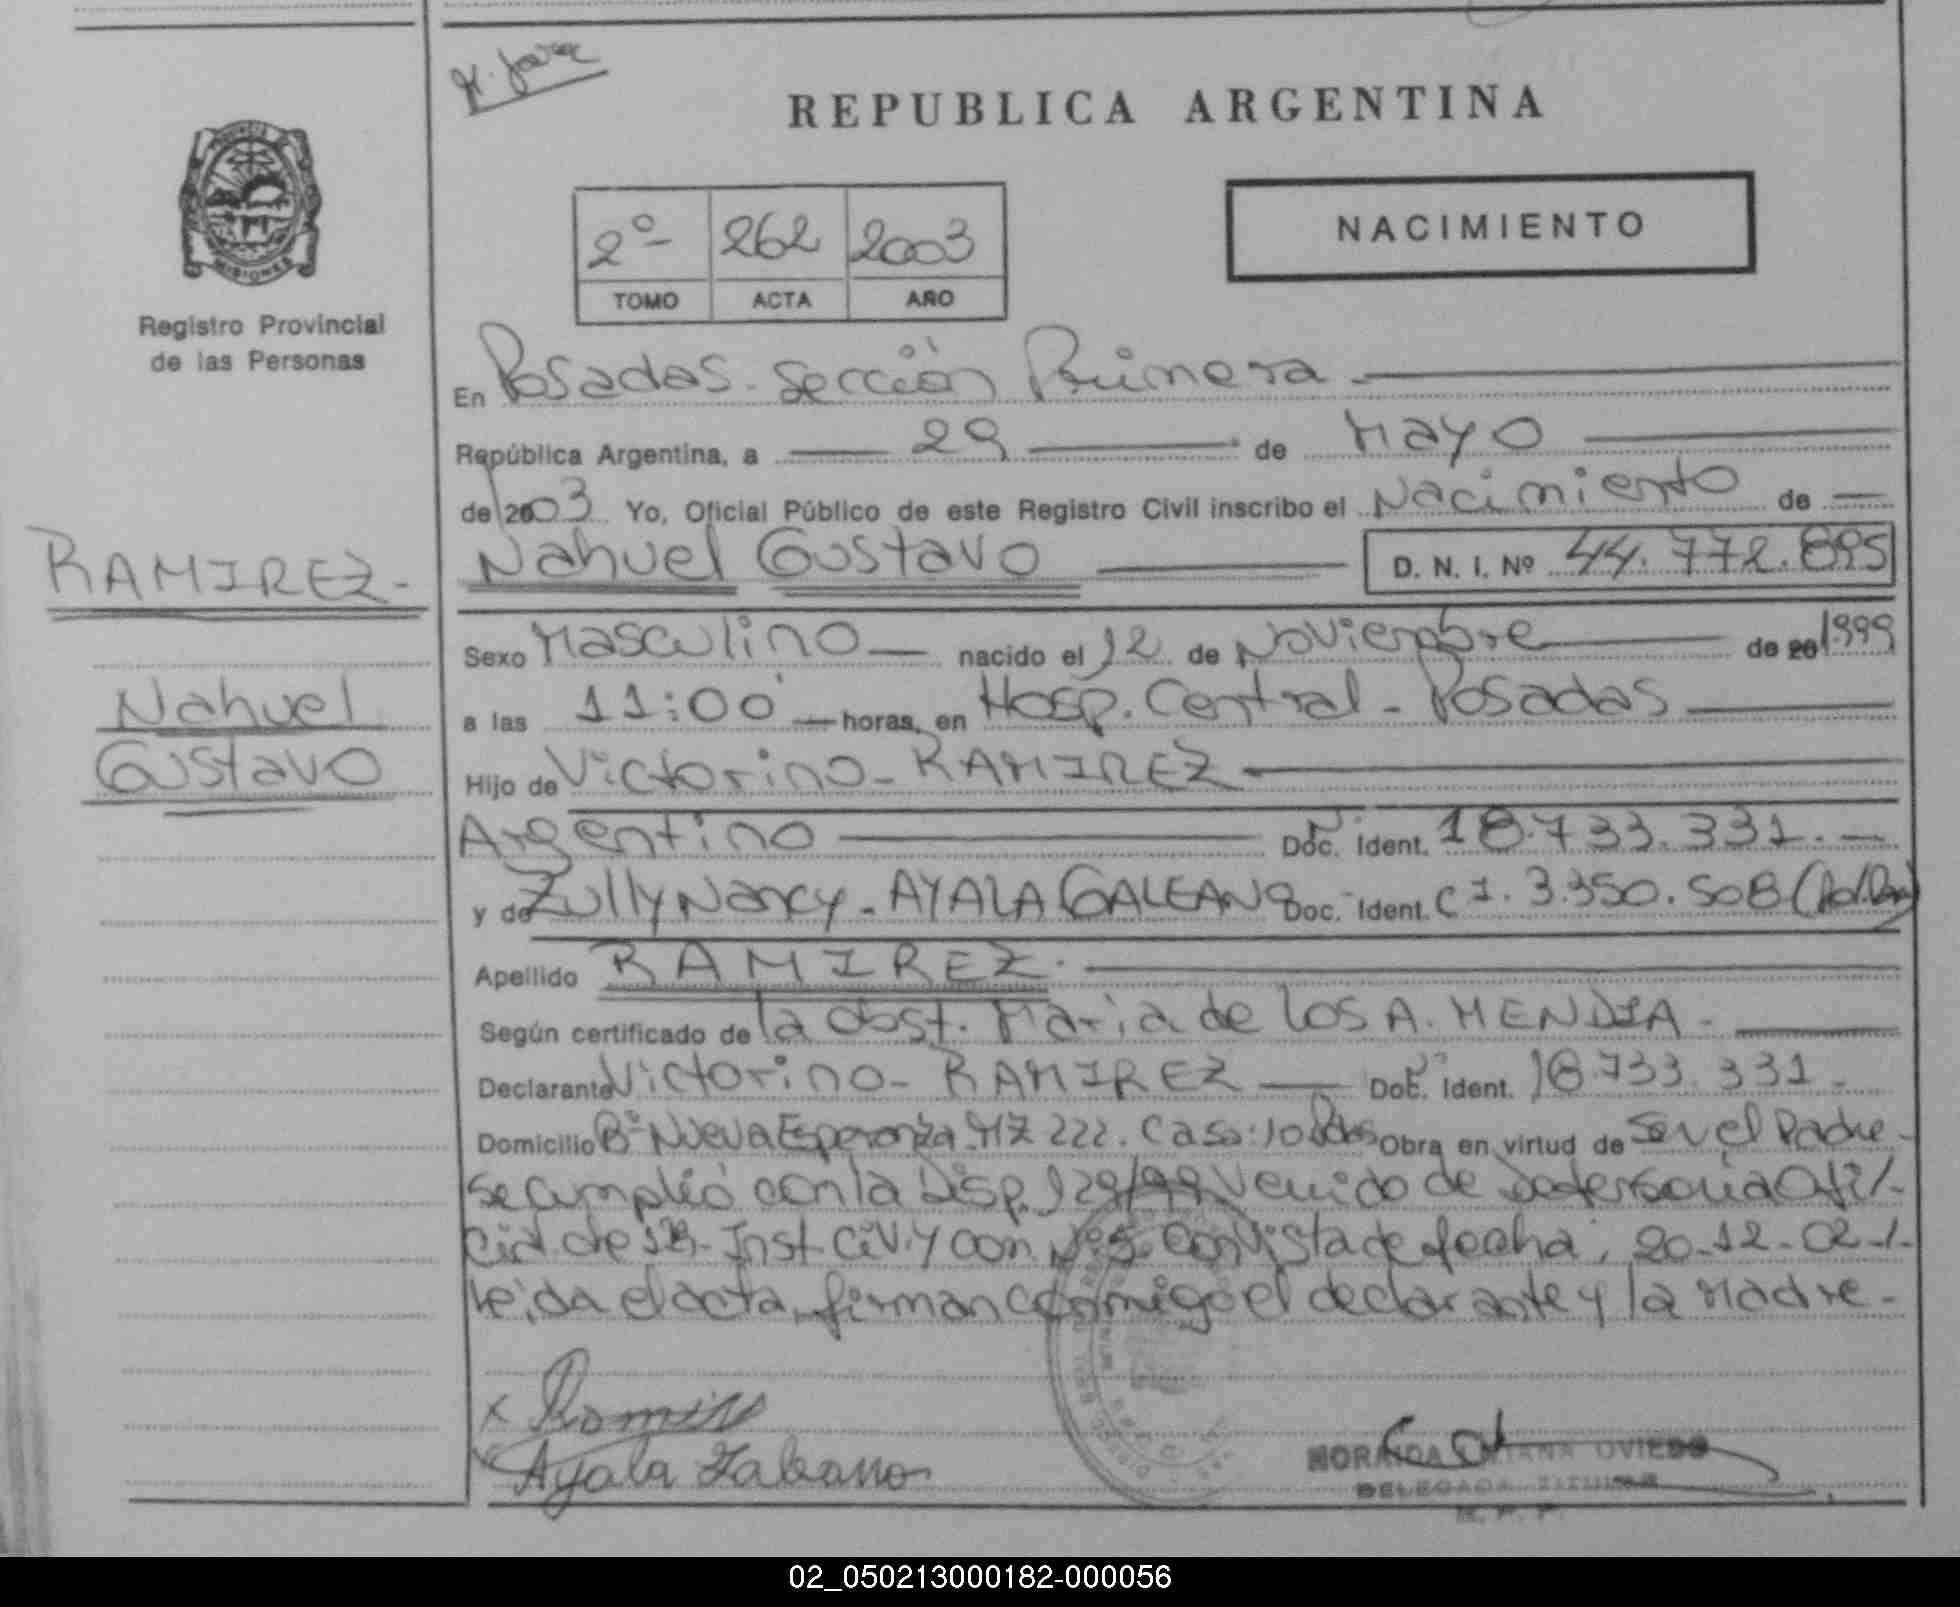 REPUBLICA ARGENTINA
MISIONES
Registro Provincial
de las Personas
2º 262 2003
TOMO ACTA AÑO
NACIMIENTO
En Posadas. Sección Primera
República Argentina, a 29 de Mayo
de 2003 Yo, Oficial Público de este Registro Civil inscribo el Nacimiento de
Nahuel Gustavo D. N. I. Nº 44.772.895
RAMIREZ.
Nahuel
Gustavo
Sexo Masculino nacido el 12 de Noviembre de 20 1999
a las 11:00 horas, en Hosp. Central - Posadas
Hijo de Victorino - RAMIREZ
Argentino Doc. Ident. 18.733.331.
y de Zully Nancy - AYALA GALEANO Doc. Ident. C I. 3.350.508
Apellido RAMIREZ.
Según certificado de la obst. Maria de los A. MENDIA.
Declarante Victorino - RAMIREZ Doc. Ident. 18.733.331.
Domicilio Bº Nueva Esperanza MZ 222. Casa: 10 Pdas Obra en virtud de Ser el Padre -
se cumplió con la Disp. 129/99 Venido de
de Inst. Civ. y Com. Nº 5. Con Vista de fecha: 20-12-02
leida el acta, firman conmigo el declarante y la Madre -
x Ramirez
Ayala Galeano
OVIEDO
DELEGADA TITULAR
R. P. P.
02_050213000182-000056